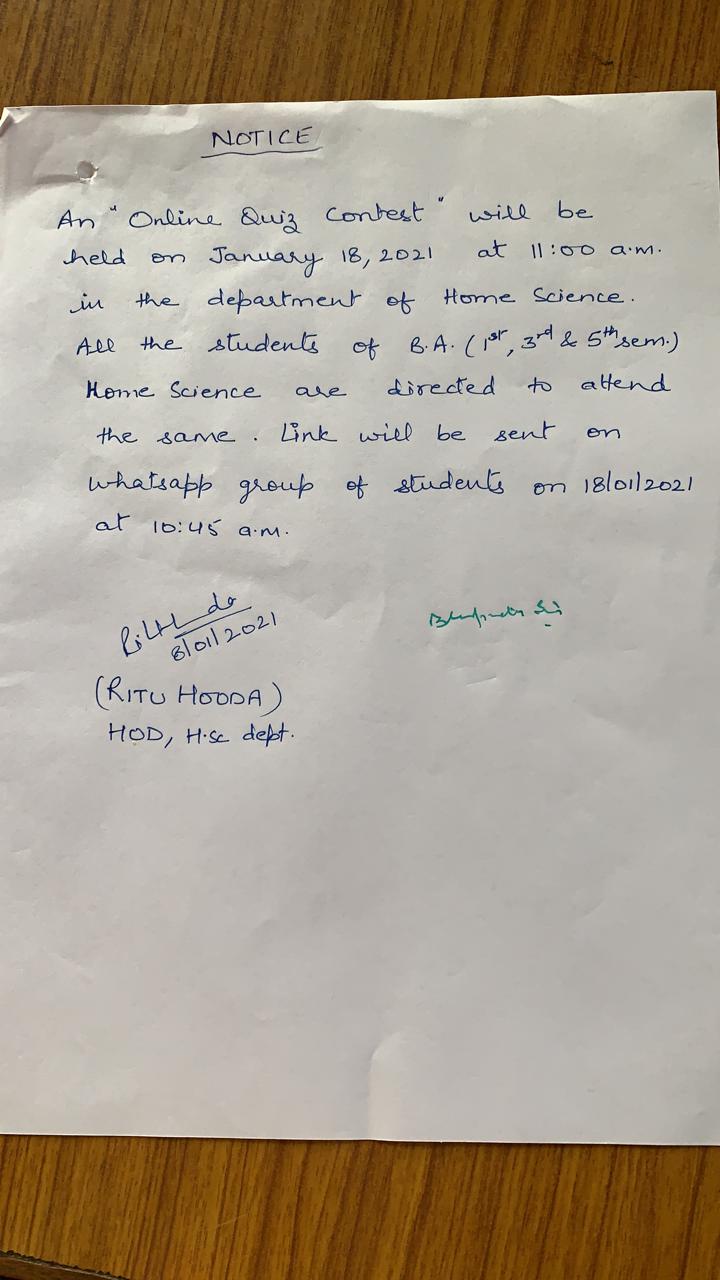 NOTICE
An "Online Quiz Contest" will be
held on January 18, 2021 at 11:00 a.m.
in the department of Home Science.
All the students of B.A. (1st, 3rd & 5th sem.)
Home Science are directed to attend
the same. Link will be sent on
whatsapp group of students on 18/01/2021
at 10:45 a.m.
8/01/2021
(RITU HOODA)
HOD, H.Sc dept.